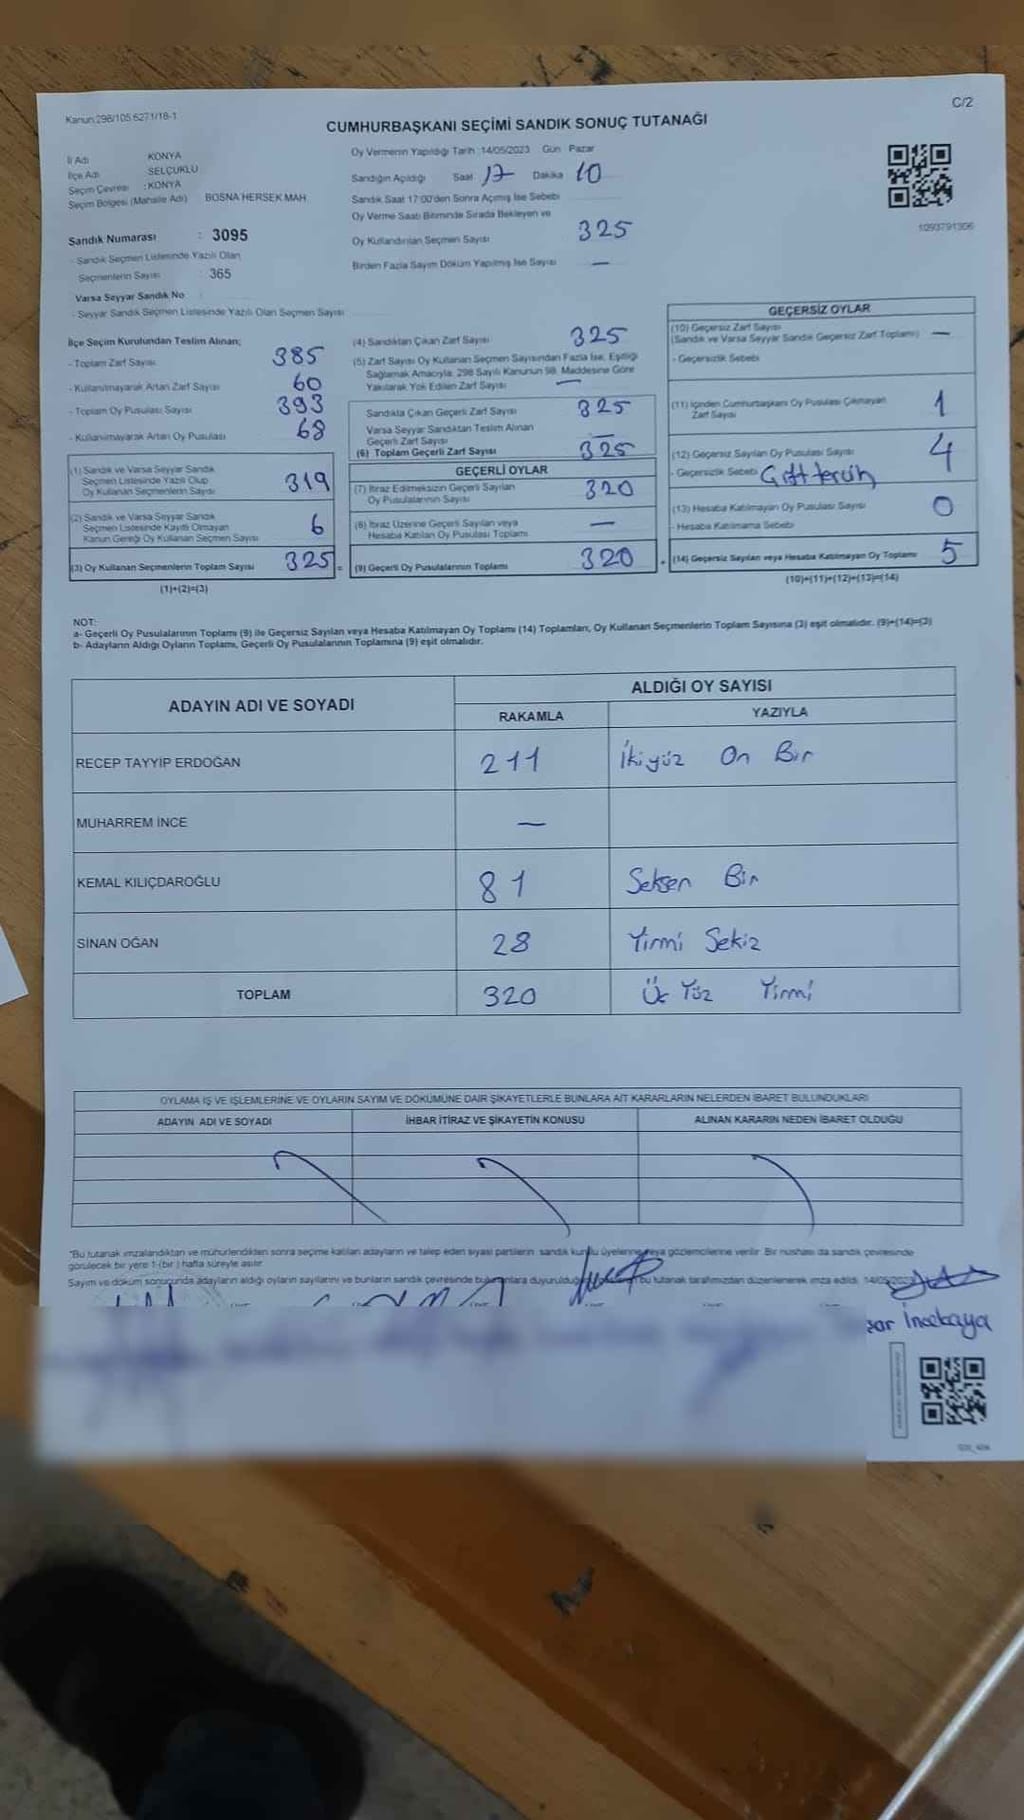 Kanun 298/105 6271/18-1
C/2
CUMHURBAŞKANI SEÇİMİ SANDIK SONUÇ TUTANAĞI
İl Adı KONYA
İlçe Adı SELÇUKLU
Seçim Çevresi : KONYA
Seçim Bölgesi (Mahalle Adı) BOSNA HERSEK MAH.
Sandık Numarası : 3095
- Sandık Seçmen Listesinde Yazılı Olan
Seçmenlerin Sayısı : 365
Varsa Seyyar Sandık No
- Seyyar Sandık Seçmen Listesinde Yazılı Olan Seçmen Sayısı
Oy Vermenin Yapıldığı Tarih : 14/05/2023 Gün Pazar
Sandığın Açıldığı Saat 17 Dakika 10
Sandık Saat 17:00'den Sonra Açılmış İse Sebebi
Oy Verme Saati Bitiminde Sırada Bekleyen ve
Oy Kullandırılan Seçmen Sayısı 325
Birden Fazla Sayım Döküm Yapılmış İse Sayısı —
1093791306
İlçe Seçim Kurulundan Teslim Alınan;
- Toplam Zarf Sayısı 385
- Kullanılmayarak Artan Zarf Sayısı 60
- Toplam Oy Pusulası Sayısı 393
- Kullanılmayarak Artan Oy Pusulası 68
(1) Sandık ve Varsa Seyyar Sandık
Seçmen Listesinde Yazılı Olup
Oy Kullanan Seçmenlerin Sayısı 319
(2) Sandık ve Varsa Seyyar Sandık
Seçmen Listesinde Kayıtlı Olmayan
Kanun Gereği Oy Kullanan Seçmen Sayısı 6
(3) Oy Kullanan Seçmenlerin Toplam Sayısı 325 =
(1)+(2)=(3)
(4) Sandıktan Çıkan Zarf Sayısı 325
(5) Zarf Sayısı Oy Kullanan Seçmen Sayısından Fazla İse, Eşitliği
Sağlamak Amacıyla, 298 Sayılı Kanunun 98. Maddesine Göre
Yakılarak Yok Edilen Zarf Sayısı —
Sandıkta Çıkan Geçerli Zarf Sayısı 325
Varsa Seyyar Sandıktan Teslim Alınan
Geçerli Zarf Sayısı —
(6) Toplam Geçerli Zarf Sayısı 325
GEÇERLİ OYLAR
(7) İtiraz Edilmeksizin Geçerli Sayılan
Oy Pusulalarının Sayısı 320
(8) İtiraz Üzerine Geçerli Sayılan veya
Hesaba Katılan Oy Pusulası Toplamı —
(9) Geçerli Oy Pusulalarının Toplamı 320 +
GEÇERSİZ OYLAR
(10) Geçersiz Zarf Sayısı
(Sandık ve Varsa Seyyar Sandık Geçersiz Zarf Toplamı) —
- Geçersizlik Sebebi
(11) İçinden Cumhurbaşkanı Oy Pusulası Çıkmayan
Zarf Sayısı 1
(12) Geçersiz Sayılan Oy Pusulası Sayısı 4
- Geçersizlik Sebebi Çift tercih
(13) Hesaba Katılmayan Oy Pusulası Sayısı 0
- Hesaba Katılmama Sebebi
(14) Geçersiz Sayılan veya Hesaba Katılmayan Oy Toplamı 5
(10)+(11)+(12)+(13)=(14)
NOT:
a- Geçerli Oy Pusulalarının Toplamı (9) ile Geçersiz Sayılan veya Hesaba Katılmayan Oy Toplamı (14) Toplamları, Oy Kullanan Seçmenlerin Toplam Sayısına (3) eşit olmalıdır. (9)+(14)=(3)
b- Adayların Aldığı Oyların Toplamı, Geçerli Oy Pusulalarının Toplamına (9) eşit olmalıdır.
ADAYIN ADI VE SOYADI
ALDIĞI OY SAYISI
RAKAMLA YAZIYLA
RECEP TAYYİP ERDOĞAN 211 İkiyüz On Bir
MUHARREM İNCE —
KEMAL KILIÇDAROĞLU 81 Seksen Bir
SİNAN OĞAN 28 Yirmi Sekiz
TOPLAM 320 Üç Yüz Yirmi
OYLAMA İŞ VE İŞLEMLERİNE VE OYLARIN SAYIM VE DÖKÜMÜNE DAİR ŞİKAYETLERLE BUNLARA AİT KARARLARIN NELERDEN İBARET BULUNDUKLARI
ADAYIN ADI VE SOYADI İHBAR İTİRAZ VE ŞİKAYETİN KONUSU ALINAN KARARIN NEDEN İBARET OLDUĞU
*Bu tutanak imzalandıktan ve mühürlendikten sonra seçime katılan adayların ve talep eden siyasi partilerin sandık kurulu üyelerine veya gözlemcilerine verilir. Bir nüshası da sandık çevresinde
görülecek bir yere 1 (bir) hafta süreyle asılır.
Sayım ve döküm sonucunda adayların aldığı oyların sayılarını ve bunların sandık çevresinde bulunanlara duyurulduğu bu tutanak tarafımızdan düzenlenerek imza edildi. 14/05/2023
İncekaya